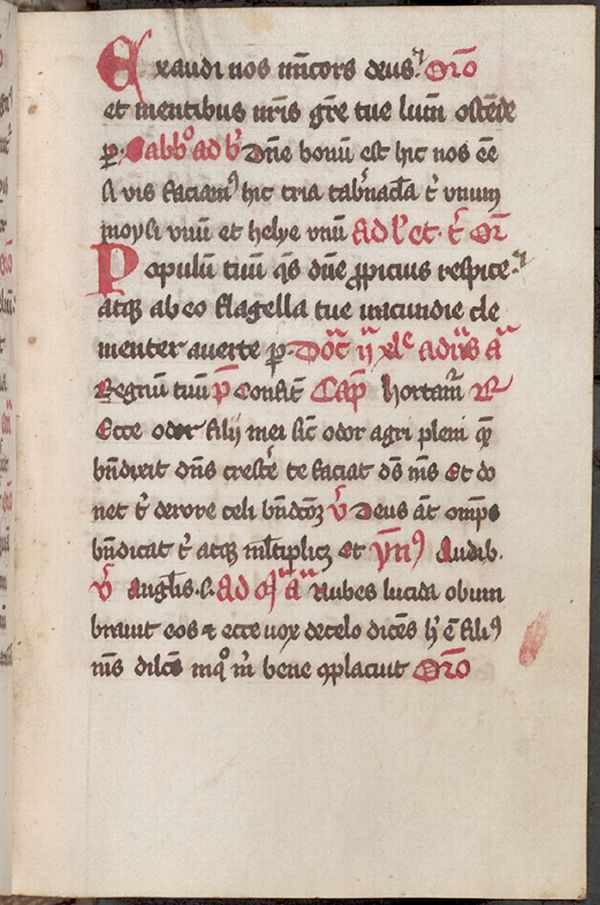 Exaudi nos mīcors deus. Orō
et mentibus nr̄is grē tue lum̄ ostēde
ꝑ. Sabbō ad b' Dn̄e bonū est hic nos eē
si vis faciamꝰ hic tria tab'nacl̄a t' vnum
moysi vnū et helye vnū ad l' et t' Or̄
Populū tuū q̄s dn̄e ꝓpicius respice
atqꝫ ab eo flagella tue iracundie cle
menter auerte ꝑ. Doc̄ ii xl^e ad vs a
Regnū tuū p̄ Confit̄ Cap̄ hortam̄ R
Ecce odor filij mei sic̄ odor agri pleni q̄
bn̄dixit dn̄s cresc'e te faciat ds̄ ms̄ Et do
net t' de rore celi bn̄dcōꝫ v̄ Deus aūt omps̄
bn̄dicat t' atqꝫ ml̄tiplicꝫ Et ym̄nꝰ Audib.
v̄ Angl̄is. s. ad a Nubes lucida obum
brauit eos ⁊ ecce vox de celo dicēs h' ē filiꝰ
ms̄ dilc̄s in q̊ m̄ bene ꝯplacuit Orō